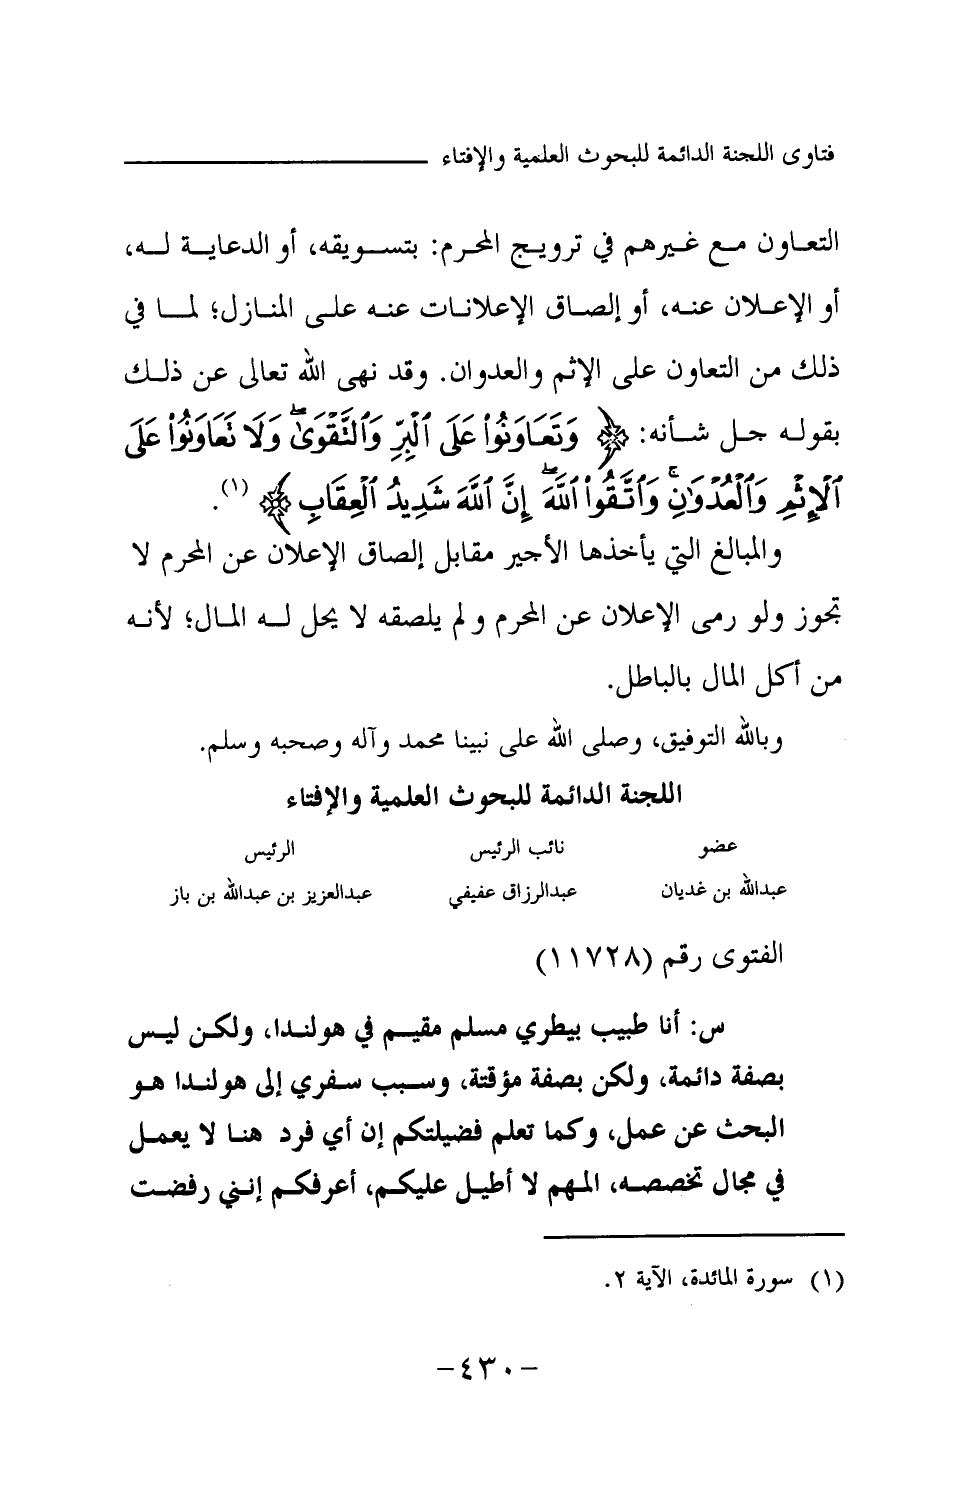 فتاوى اللجنة الدائمة للبحوث العلمية والإفتاء
التعاون مع غيرهم في ترويج المحرم: بتسويقه، أو الدعاية له،
أو الإعلان عنه، أو إلصاق الإعلانات عنه على المنازل؛ لما في
ذلك من التعاون على الإثم والعدوان. وقد نهى الله تعالى عن ذلك
بقوله جل شأنه: ﴿ وَتَعَاوَنُوا۟ عَلَى ٱلْبِرِّ وَٱلتَّقْوَىٰ ۖ وَلَا تَعَاوَنُوا۟ عَلَى
ٱلْإِثْمِ وَٱلْعُدْوَٰنِ ۚ وَٱتَّقُوا۟ ٱللَّهَ ۖ إِنَّ ٱللَّهَ شَدِيدُ ٱلْعِقَابِ ﴾ (١).
والمبالغ التي يأخذها الأجير مقابل إلصاق الإعلان عن المحرم لا
تجوز ولو رمى الإعلان عن المحرم ولم يلصقه لا يحل له المال؛ لأنه
من أكل المال بالباطل.
وبالله التوفيق، وصلى الله على نبينا محمد وآله وصحبه وسلم.
اللجنة الدائمة للبحوث العلمية والإفتاء
عضو نائب الرئيس الرئيس
عبدالله بن غديان عبدالرزاق عفيفي عبدالعزيز بن عبدالله بن باز
الفتوى رقم (١١٧٢٨)
س: أنا طبيب بيطري مسلم مقيم في هولندا، ولكن ليس
بصفة دائمة، ولكن بصفة مؤقتة، وسبب سفري إلى هولندا هو
البحث عن عمل، وكما تعلم فضيلتكم إن أي فرد هنا لا يعمل
في مجال تخصصه، المهم لا أطيل عليكم، أعرفكم إنني رفضت
(١) سورة المائدة، الآية ٢.
-٤٣٠-